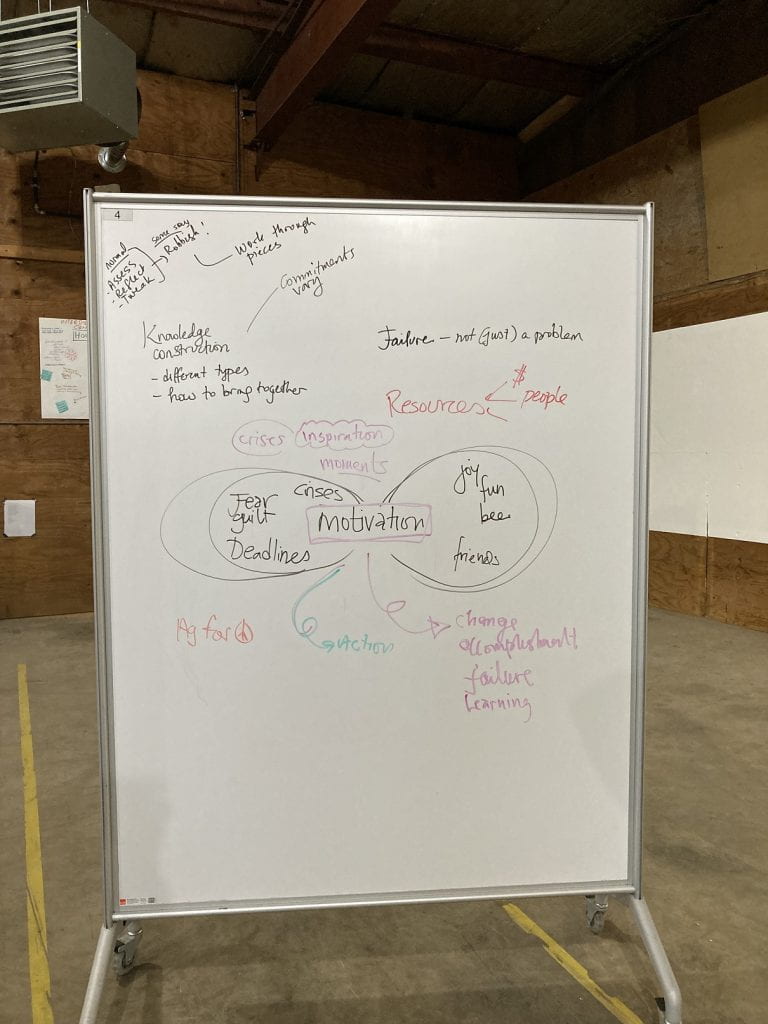 4
normal
- Assess
- Reflect
- Tweak
some say
Rubbish!
Work through
pieces
Commitments
vary
Knowledge
construction
- different types
- how to bring together
Failure - not (just) a problem
Resources
$
people
crises
inspiration
moments
crises
Fear
guilt
Deadlines
motivation
joy
fun
friends
Ag for
Action
change
accomplishment
failure
learning